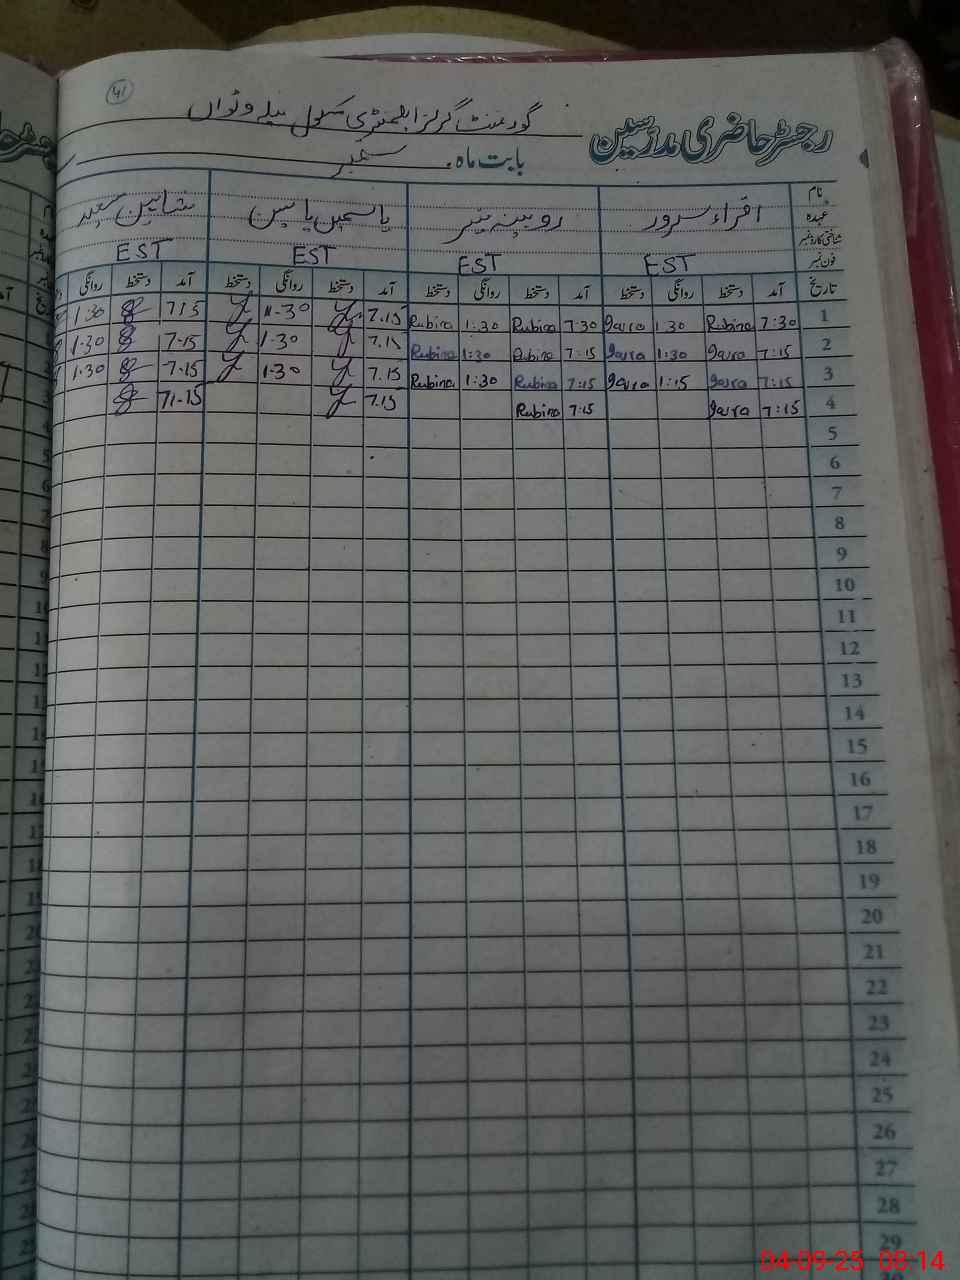 41
گورنمنٹ گرلز ایلیمنٹری سکول
رجسٹر حاضری مدرسین
بابت ماہ ستمبر
نام اقراء سرور روبینہ یاسمین یاسین شاہین سعید
عہدہ
شناختی کارڈ نمبر
EST EST EST EST
فون نمبر
تاریخ آمد دستخط روانگی دستخط آمد دستخط روانگی دستخط آمد دستخط روانگی دستخط آمد دستخط روانگی
1 7:30 Rubina 1:30 Iqra 7:30 Rubina 1:30 Rubina 7.15 11-30 715 1:30
2 7:15 Iqra 1:30 Iqra 7:15 Rubina 1:30 Rubina 7.15 1-30 7-15 1-30
3 7:15 Iqra 1:15 Iqra 7:15 Rubina 1:30 Rubina 7.15 1-30 7-15 1-30
4 7:15 Iqra 7:15 Rubina 7.15 71-15
5
6
7
8
9
10
11
12
13
14
15
16
17
18
19
20
21
22
23
24
25
26
27
28
29
04-09-25 08:14